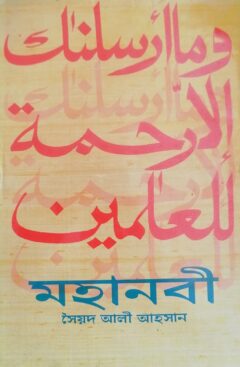 وما أرسلنٰك
إلا رحمة
للعٰلمين
মহানবী
সৈয়দ আলী আহসান